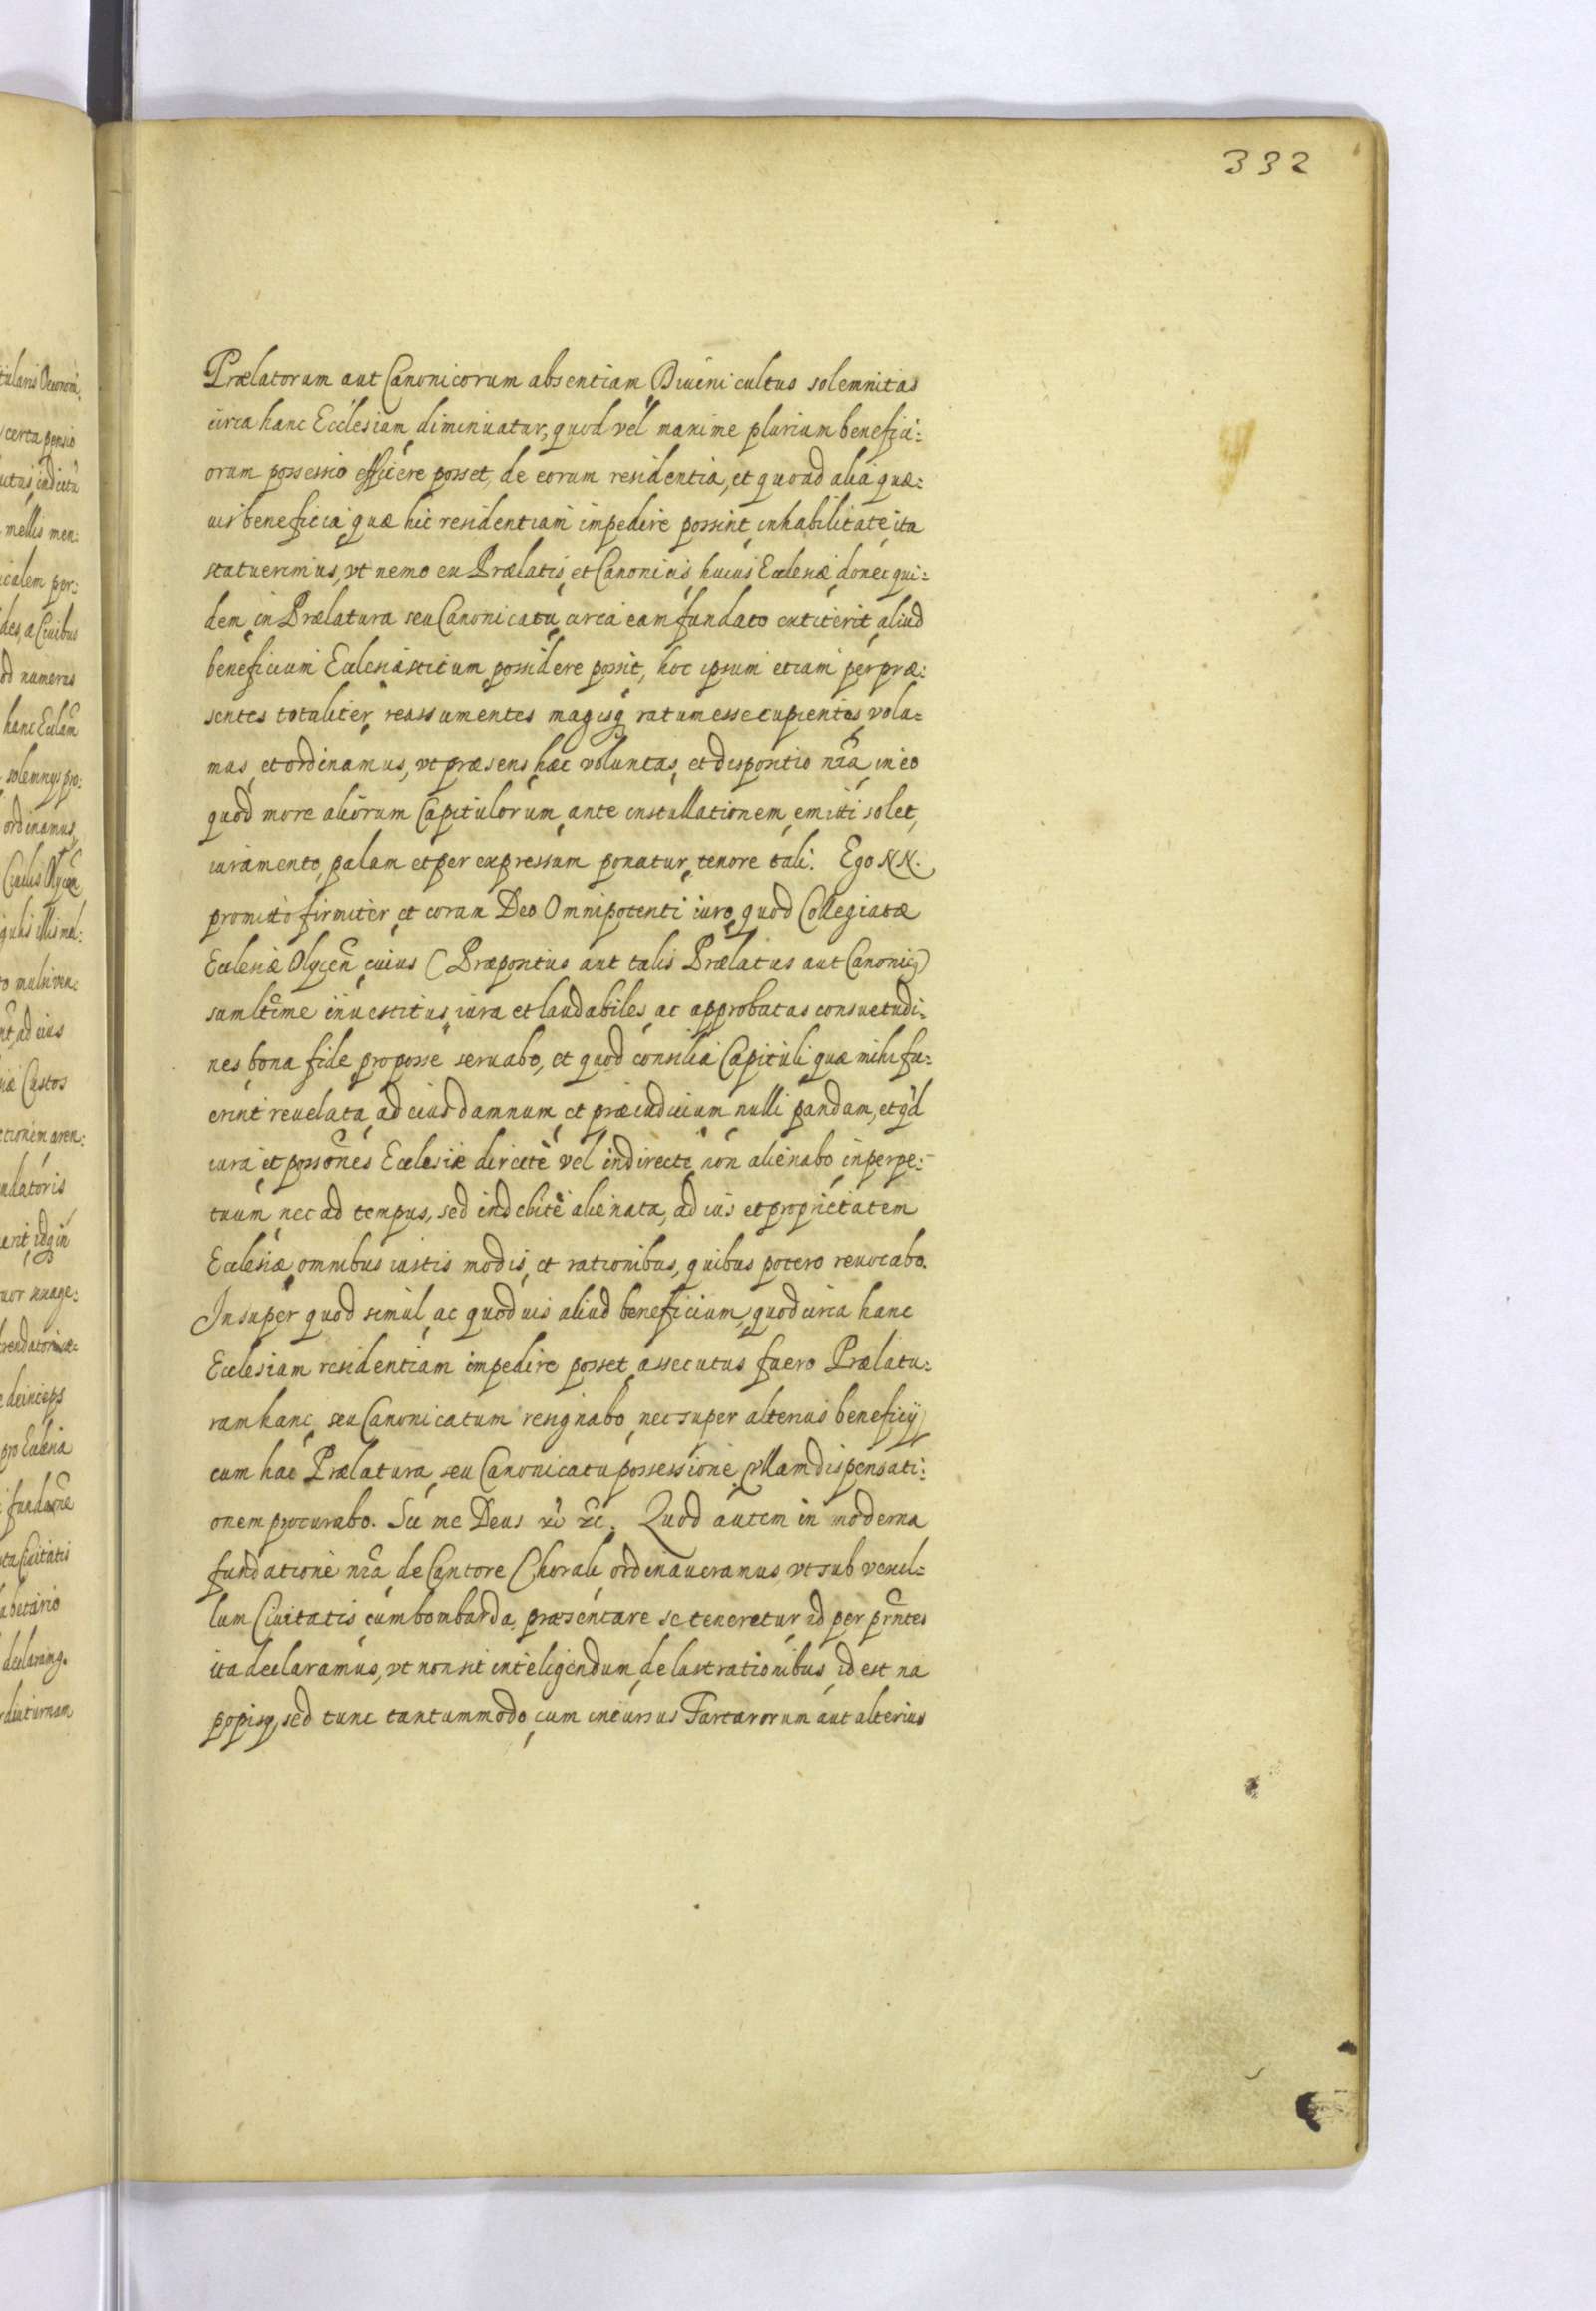 332
Prælatorum aut Canonicorum absentiam Diuini cultus solemnitas
circa hanc Ecclesiam diminuatur, quod vel maxime plurium benefici:
orum possessio efficere posset, de eorum residentia, et quoad alia quæ:
uis beneficia quæ hic residentiam impedire possint inhabilitate ita
statuerimus, vt nemo ex Prælatis et Canonicis huius Ecclesiæ donec qui:
dem in Prælatura seu Canonicatu circa eam fundato extiterit aliud
beneficium Ecclesiasticum possidere possit, hoc ipsum etiam per præ:
sentes totaliter reassumentes magisq ratum esse cupientes volu=
mus et ordinamus, vt præsens hæc voluntas et dispositio nra in eo
quod more aliorum Capitulorum ante installationem emitti solet,
iuramento, palam et per expressum ponatur tenore tali. Ego NN.
promitto firmiter et coram Deo Omnipotenti iuro quod Collegiatæ
Ecclesiæ Olycen cuius (Præpositus aut talis Prælatus aut Canonic9)
sum ltime inuestitus iura et laudabiles ac approbatas consuetudi:
nes bona fide pro posse seruabo, et quod consilia Capituli quæ mihi fu:
erint reuelata ad eius damnum et præiudicium nulli pandam, et qd
iura et possones Ecclesiæ directè vel indirecte non alienabo in perpe:
tuum nec ad tempus, sed indebitè alienata, ad ius et proprietatem
Ecclesiæ omnibus iustis modis et rationibus, quibus potero reuocabo.
Insuper quod simul ac quoduis aliud beneficium, quod circa hanc
Ecclesiam residentiam impedire posset assecutus fuero Prælatu:
ram hanc seu Canonicatum resignabo nec super alterius beneficij
cum hac Prælatura seu Canonicatu possessione vllam dispensati:
onem procurabo. Sic me Deus &c &c. Quod autem in moderna
fundatione nra de Cantore Chorali ordinaueramus vt sub vexil:
lum Ciuitatis cum bombarda præsentare se teneretur id per pntes
ita declaramus, vt non sit inteligendum de lustrationibus id est na
popisy, sed tunc tantummodo cum incursus Tartarorum aut alterius